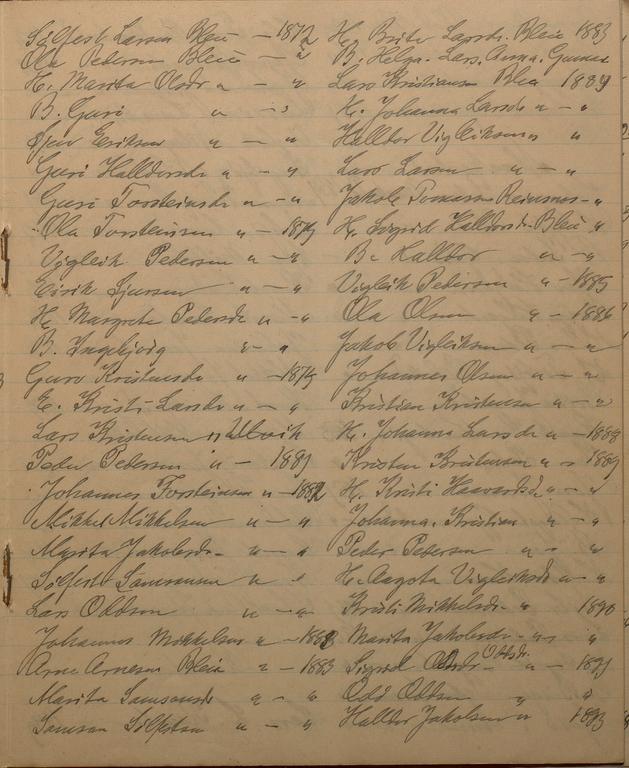 Sjølfest Larsen Bleie — 1872
Ola Pedersen Bleie — "
H. Marita Olsdr " — "
B. Guri " — "
Sjur Eriksen " — "
Guri Halldorsdr " — "
Guri Torsteinsdr " — "
Ola Torsteinsen " — 1879
Vigleik Pedersen " — "
Eirik Sjursen " — "
H. Margrete Pedersdr " — "
B. Ingebjorg " — "
Guro Kristensdr " — 1879
E. Kristi Larsdr " — "
Lars Kristensen " Ulvik
Peder Pedersen " — 1881
Johannes Torsteinsen " — 1882
Mikkel Mikkelsen " — "
Marita Jakobsdr " — "
Sjølfest Samsonsen " "
Lars Oddsen " — "
Johannes Mikkelsen " — 1868
Arne Arnesen Bleie " — 1883
Marita Samsonsdr " — "
Samson Sjølfestsen " — "
H. Brita Larsdr. Bleie 1883
B. Helga. Lars, Anna, Gunnar
Lars Kristiansen Bleie 1889
H. Johanna Larsdr " — "
Halldor Vigleiksen " "
Lars Larsen " — "
Jakob Tomassen Reisnos — "
H. Sigrid Halldorsdr Bleie "
B. Halldor " — "
Vigleik Pedersen " — 1885
Ola Olsen " — 1886
Jakob Vigleiksen " — "
Johannes Olsen " — "
Kristian Kristensen " — "
H. Johanna Larsdr " — 1889
Kristen Kristensen " — 1889
H. Kristi Haavardsdr " — "
Johanna. Kristian " — "
Peder Pedersen " — "
H. Aagota Vigleiksdr " — "
Kristi Mikkelsdr. " 1890
Marita Jakobsdr — " "
Sigrid Oddsdr — " — 1891
Odd Oddsen " "
Halldor Jakobsen " 1893